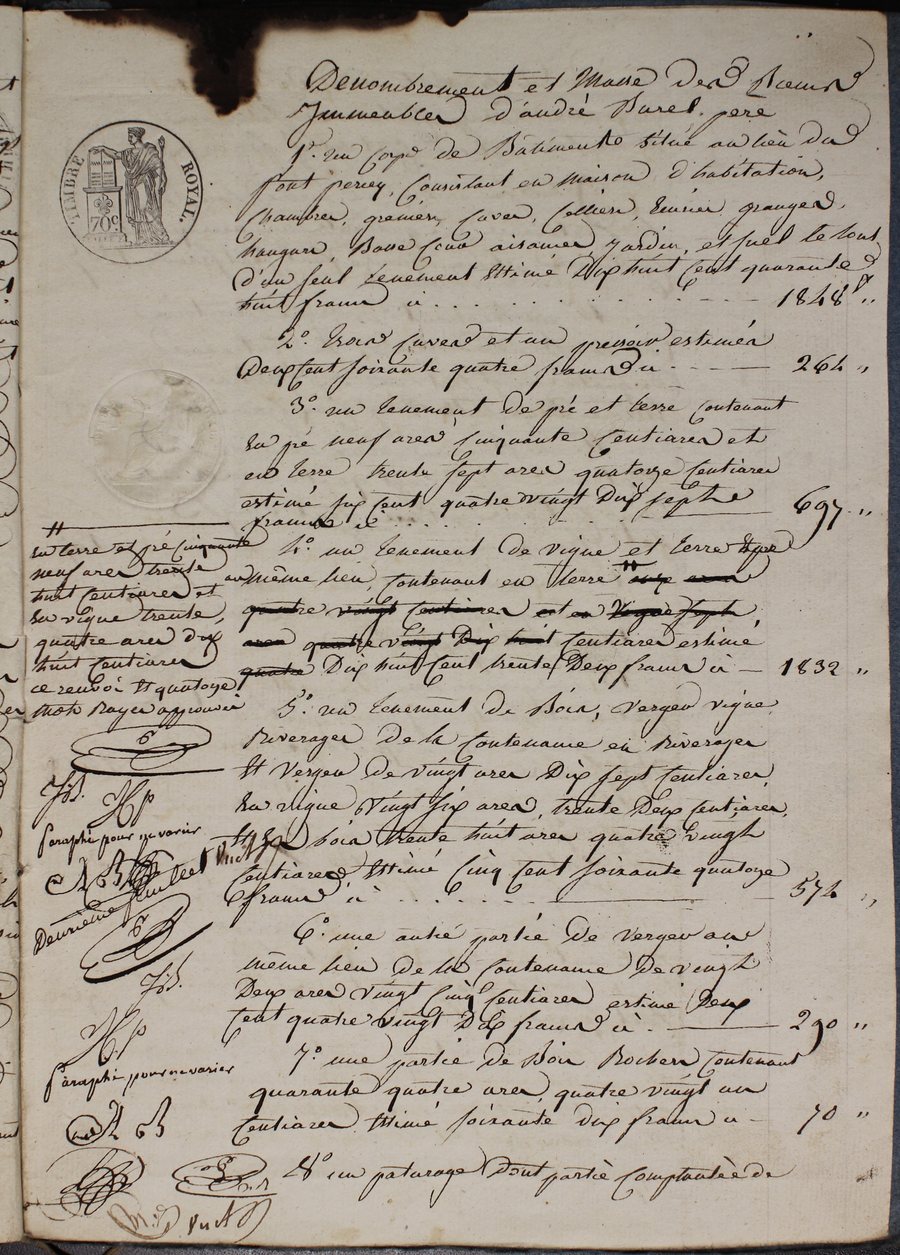 TIMBRE ROYAL.
70c
Denombrement et Masse des Biens
Immeubles d'andré Burel. pere
1° un corps de Bâtiments situé au lieu du
font percey, Consistant en maison d'habitation,
Chambres, greniers, caves, Celliers, Ecurier granges,
hangars, Basse Cour aisances jardin, et suel le tout
d'un seul tenement Estimé Dix huit Cent quarante
huit francs ci 1848 f "
2° trois caves et un pressoir estimés
Deux Cent soixante quatre francs ci 264 "
3° un tenement de pré et terre Contenant
En pré neuf ares Cinquante Centiares et
en terre trente sept ares quatorze Centiares
estimé six Cent quatre vingt Dix sept
francs ci 697 "
4° un tenement de vigne et terre
au même lieu, Contenant en terre #
quatre vingt Centiares et en Vigne sept
ares quatre vingt Dix huit Centiares estimé
quatre Dix huit Cent trente Deux francs ci 1832 "
5° un tenement de Bois, verger vigne,
Riverages de la Contenance en Riverages
Et Verger de vingt ares Dix sept Centiares
En vigne, Vingt six ares, trente Deux Centiares,
Et En bois trente huit ares quatre vingt
Centiares Estimé Cinq Cent soixante quatorze
francs ci 574 "
6° une autre partie de verger au
même lieu de la Contenance De vingt
Deux ares vingt Cinq Centiares estimé Deux
Cent quatre vingt Dix francs ci 290 "
7° une partie de Bois Rochers Contenant
quarante quatre ares, quatre vingt un
Centiares Estimé soixante dix francs ci 70 "
8° un paturage Dont partie complantée de
#
En terre et pré Cinquante
neuf ares trente
huit Centiares et
En vigne trente,
quatre ares dix
huit Centiares
ce renvoi Et quatorze
mots Rayés approuvés
JB.
HP
Paraphé pour ne varier
Deuxième feuillet
JB.
HP
Paraphé pour ne varier